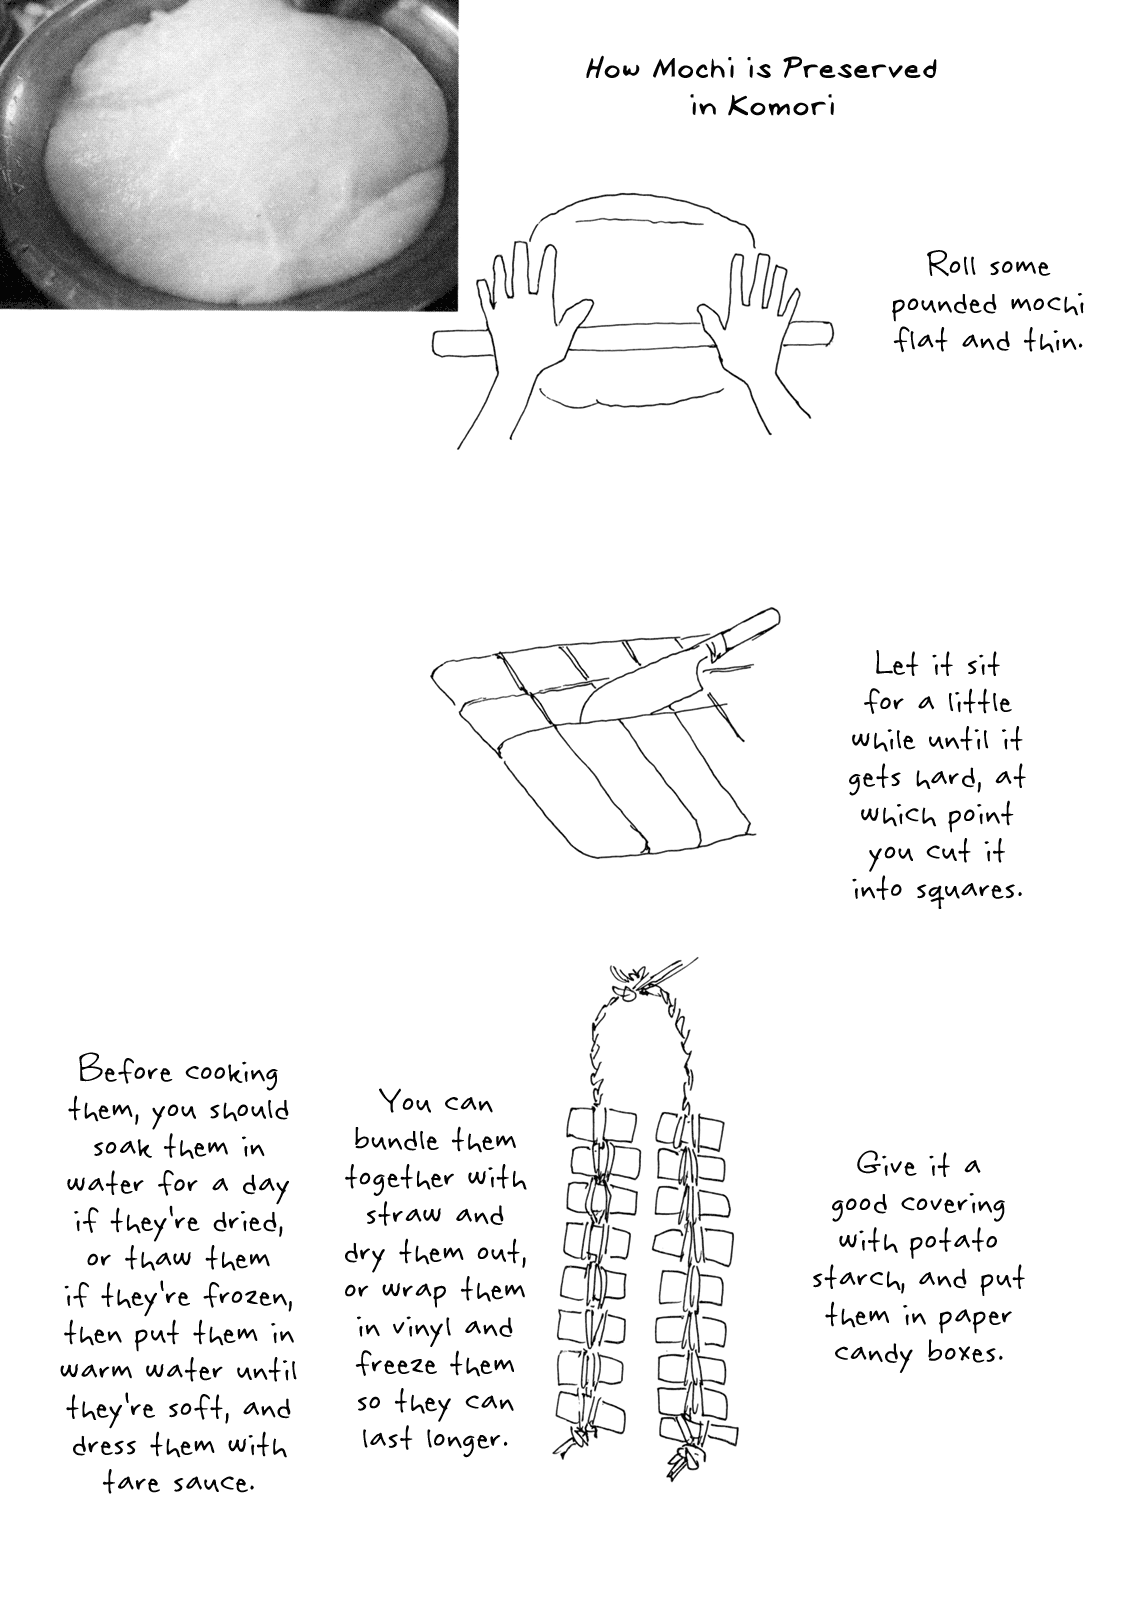 How Mochi is Preserved
in Komori
Roll some
pounded mochi
flat and thin.
Let it sit
for a little
while until it
gets hard, at
which point
you cut it
into squares.
Give it a
good covering
with potato
starch, and put
them in paper
candy boxes.
You can
bundle them
together with
straw and
dry them out,
or wrap them
in vinyl and
freeze them
so they can
last longer.
Before cooking
them, you should
soak them in
water for a day
if they're dried,
or thaw them
if they're frozen,
then put them in
warm water until
they're soft, and
dress them with
tare sauce.